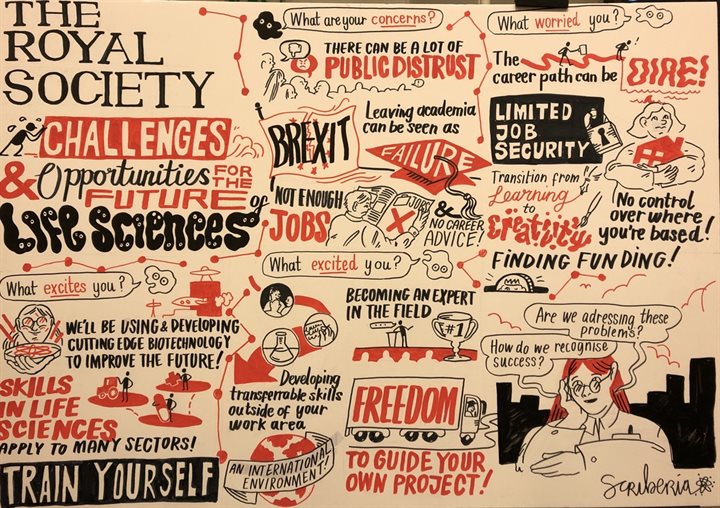 THE
ROYAL
SOCIETY
CHALLENGES
& Opportunities FOR
THE
FUTURE
of
LIFE SCIENCES
What are your concerns?
THERE CAN BE A LOT OF
PUBLIC DISTRUST
BREXIT
Leaving academia
can be seen as
FAILURE
NOT ENOUGH
JOBS
JOBS
& NO CAREER
ADVICE!
What worried you?
The
career path can be
DIRE!
LIMITED
JOB
SECURITY
Transition from
Learning
to
Creativity
No control
over where
you're based!
FINDING FUNDING!
What excites you?
WE'LL BE USING & DEVELOPING
CUTTING EDGE BIOTECHNOLOGY
TO IMPROVE THE FUTURE!
SKILLS
IN LIFE
SCIENCES
APPLY TO MANY SECTORS!
TRAIN YOURSELF
What excited you?
Developing
transferrable skills
outside of your
work area
AN INTERNATIONAL
ENVIRONMENT!
BECOMING AN EXPERT
IN THE FIELD
#1
FREEDOM
TO GUIDE YOUR
OWN PROJECT!
Are we adressing these
problems?
How do we recognise
success?
Scriberia